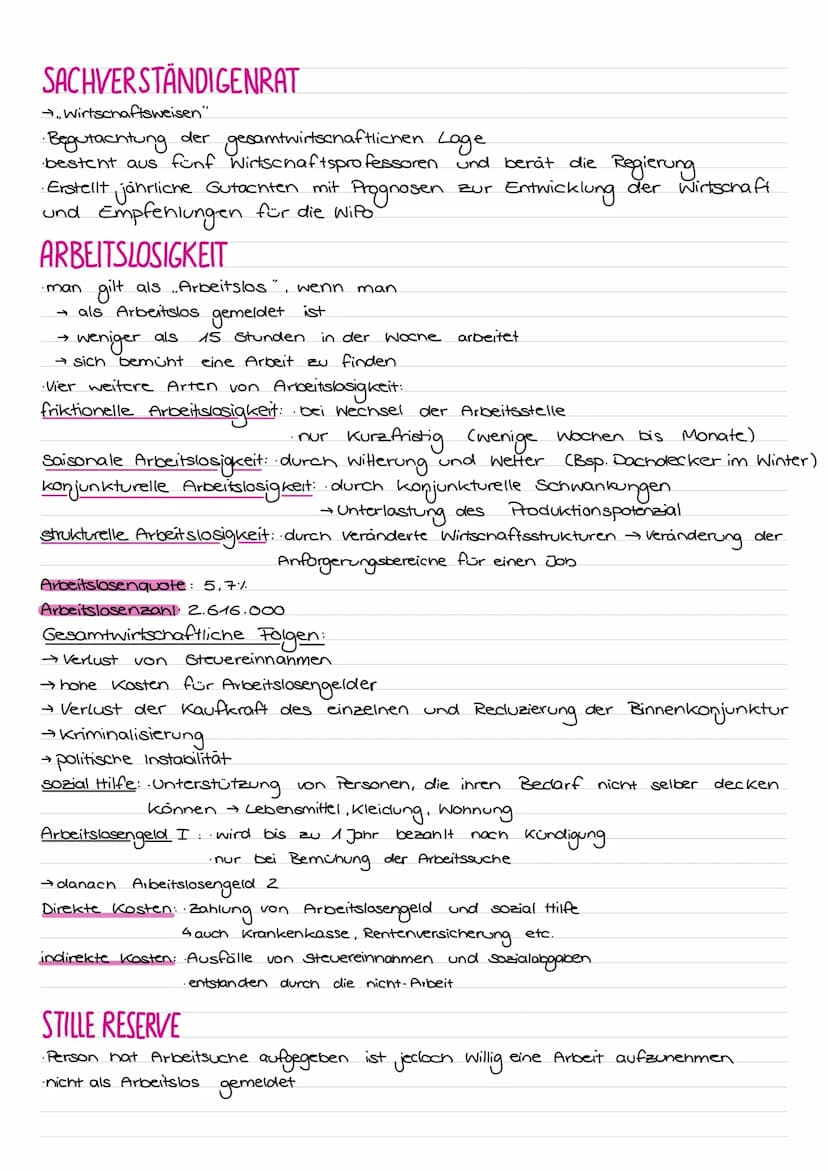 SACHVERSTÄNDIGENRAT
→ „Wirtschaftsweisen"
· Begutachtung der gesamtwirtschaftlichen Lage
· besteht aus fünf Wirtschaftsprofessoren und berät die Regierung
· Erstellt jährliche Gutachten mit Prognosen zur Entwicklung der Wirtschaft
und Empfehlungen für die WiPo
ARBEITSLOSIGKEIT
· man gilt als „Arbeitslos", wenn man
→ als Arbeitslos gemeldet ist
→ weniger als 15 Stunden in der Woche arbeitet
→ sich bemüht eine Arbeit zu finden
· Vier weitere Arten von Arbeitslosigkeit:
friktionelle Arbeitslosigkeit: · bei Wechsel der Arbeitsstelle
· nur Kurzfristig (wenige Wochen bis Monate)
Saisonale Arbeitslosigkeit: · durch Witterung und Wetter (Bsp. Dachdecker im Winter)
konjunkturelle Arbeitslosigkeit: · durch konjunkturelle Schwankungen
→ Unterlastung des Produktionspotenzial
strukturelle Arbeitslosigkeit: · durch veränderte Wirtschaftsstrukturen → Veränderung der
Anforgerungsbereiche für einen Job
Arbeitslosenquote: 5,7%
Arbeitslosenzahl: 2.616.000
Gesamtwirtschaftliche Folgen:
→ Verlust von Steuereinnahmen
→ hohe Kosten für Arbeitslosengelder
→ Verlust der Kaufkraft des einzelnen und Reduzierung der Binnenkonjunktur
→ Kriminalisierung
→ politische Instabilität
sozial Hilfe: · Unterstützung von Personen, die ihren Bedarf nicht selber decken
können → Lebensmittel, Kleidung, Wohnung
Arbeitslosengeld I: · wird bis zu 1 Jahr bezahlt nach Kündigung
· nur bei Bemühung der Arbeitssuche
→ danach Arbeitslosengeld 2
Direkte Kosten: · Zahlung von Arbeitslosengeld und sozial Hilfe
↳ auch Krankenkasse, Rentenversicherung etc.
indirekte Kosten: · Ausfälle von Steuereinnahmen und Sozialabgaben
· entstanden durch die nicht-Arbeit
STILLE RESERVE
· Person hat Arbeitsuche aufgegeben ist jedoch willig eine Arbeit aufzunehmen
· nicht als Arbeitslos gemeldet